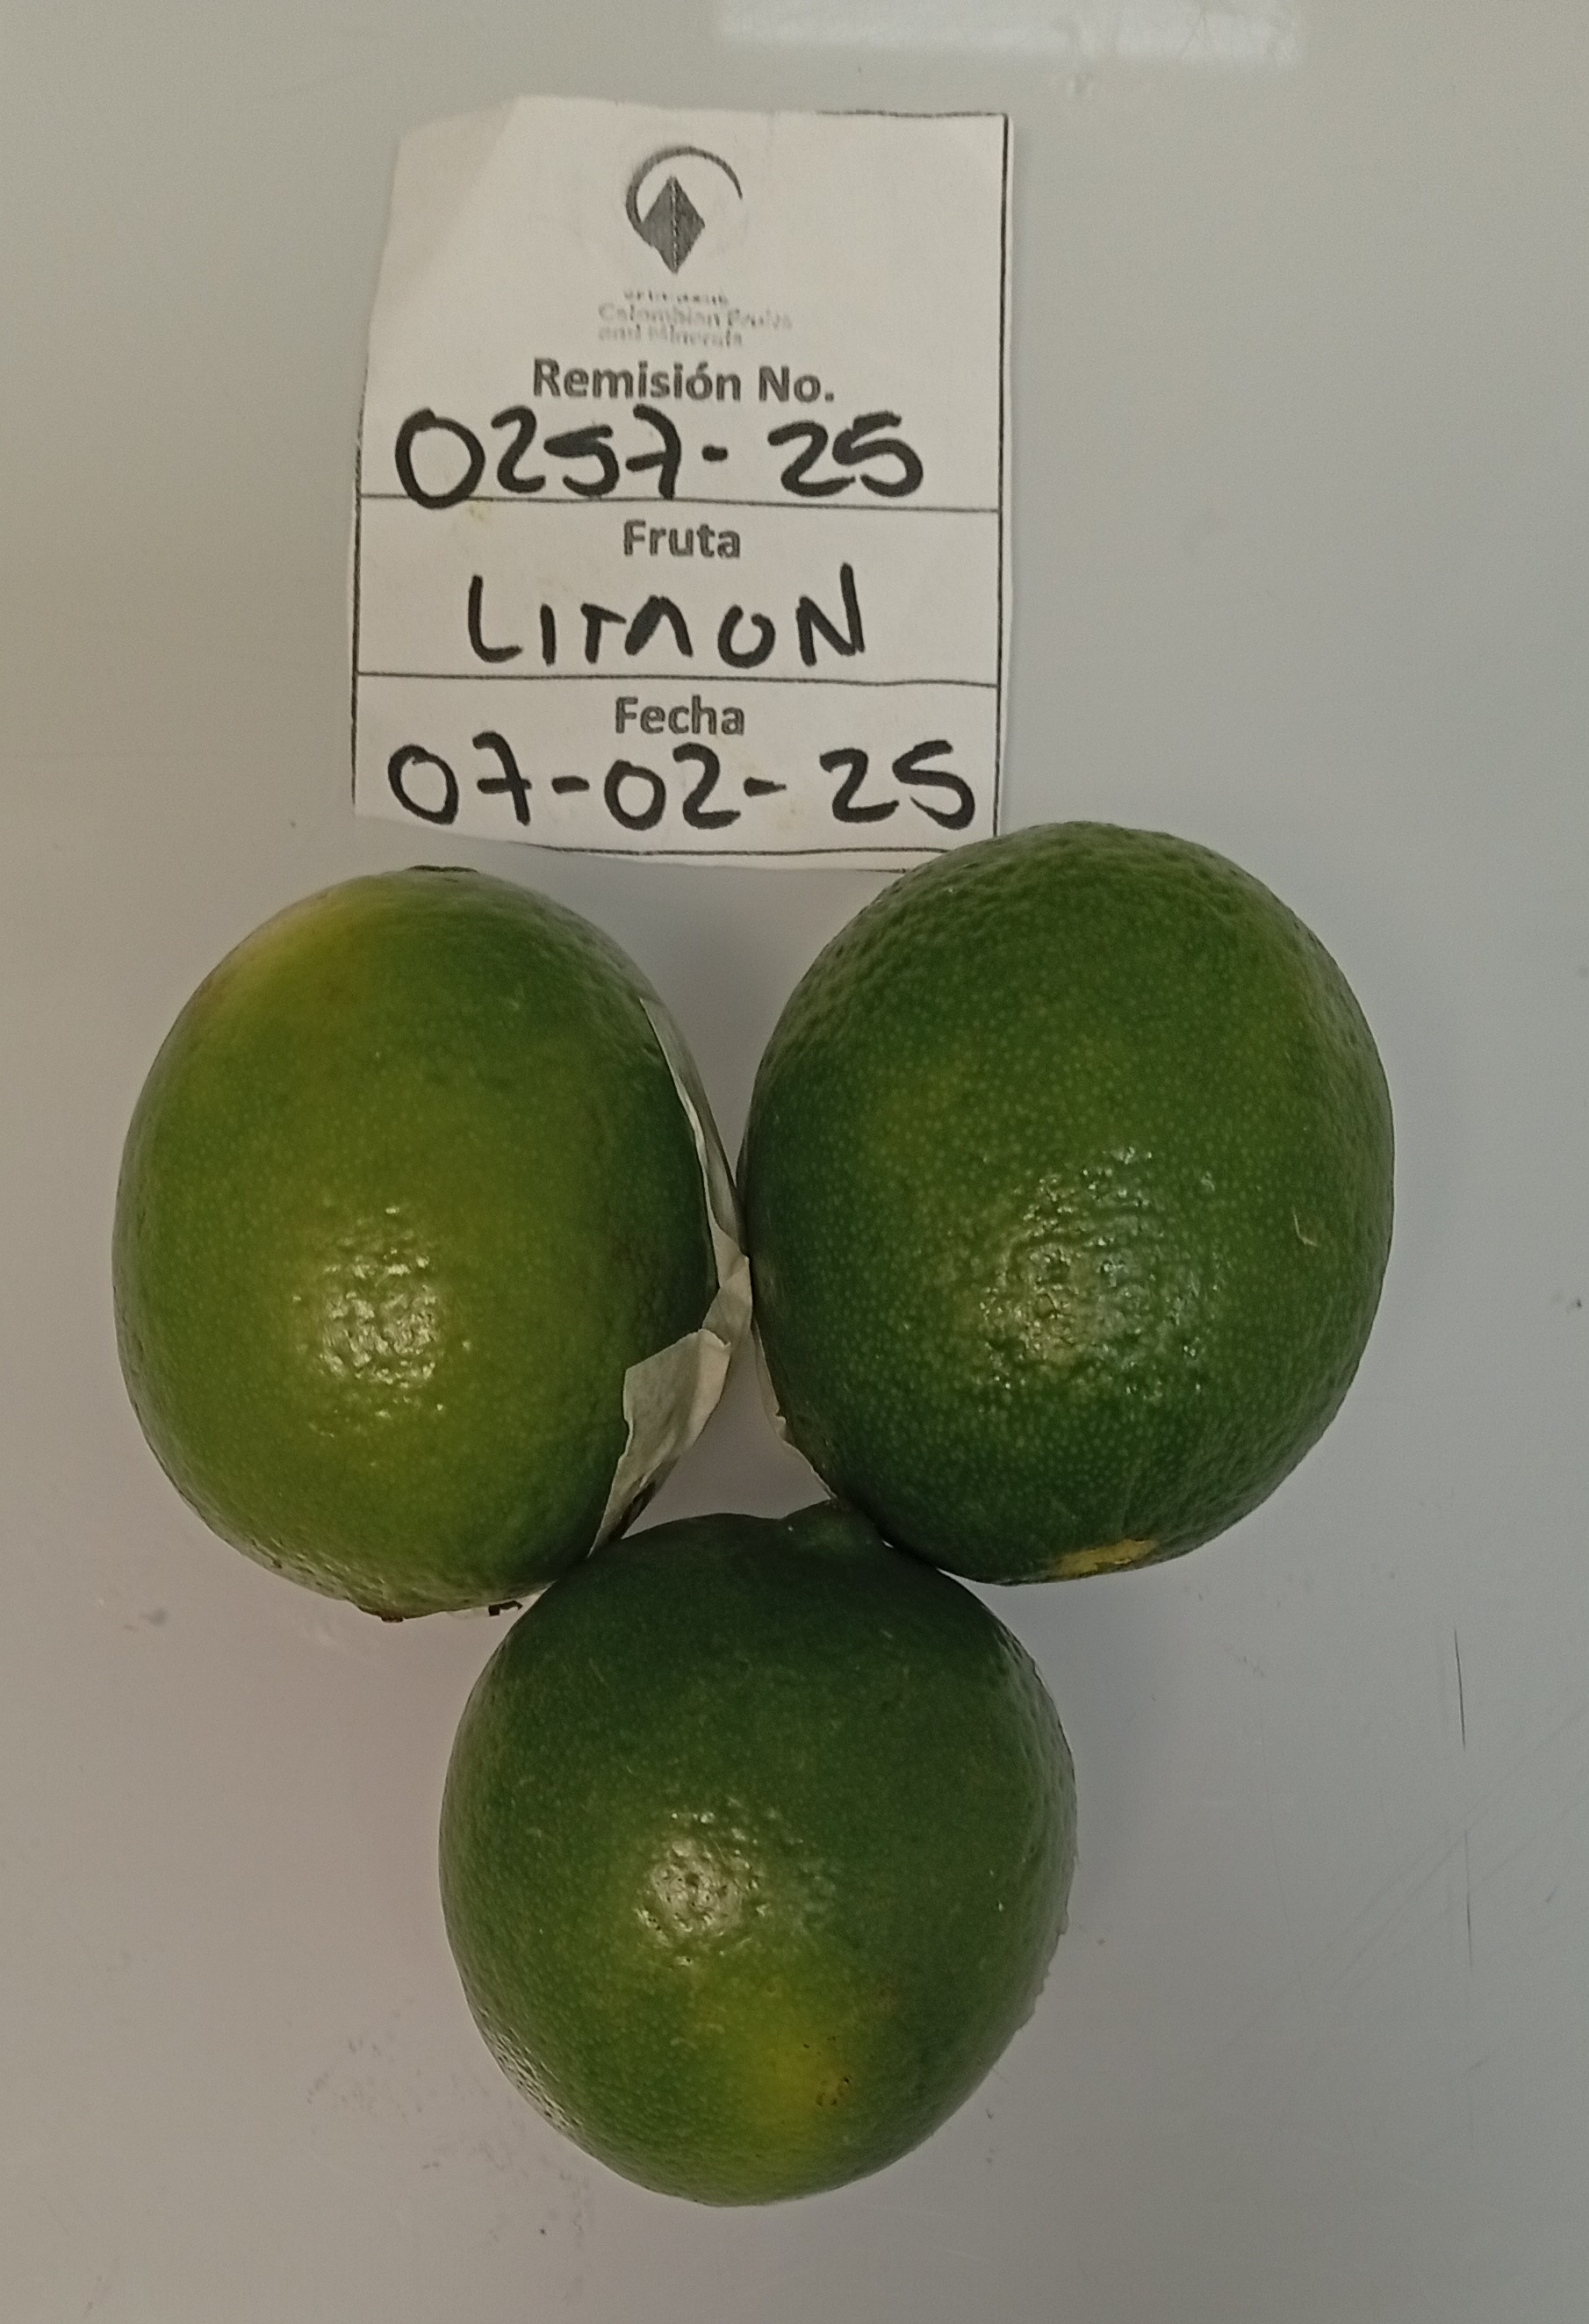 Colombian Fruits
and Minerals
Remisión No.
0257-25
Fruta
LIMON
Fecha
07-02-25